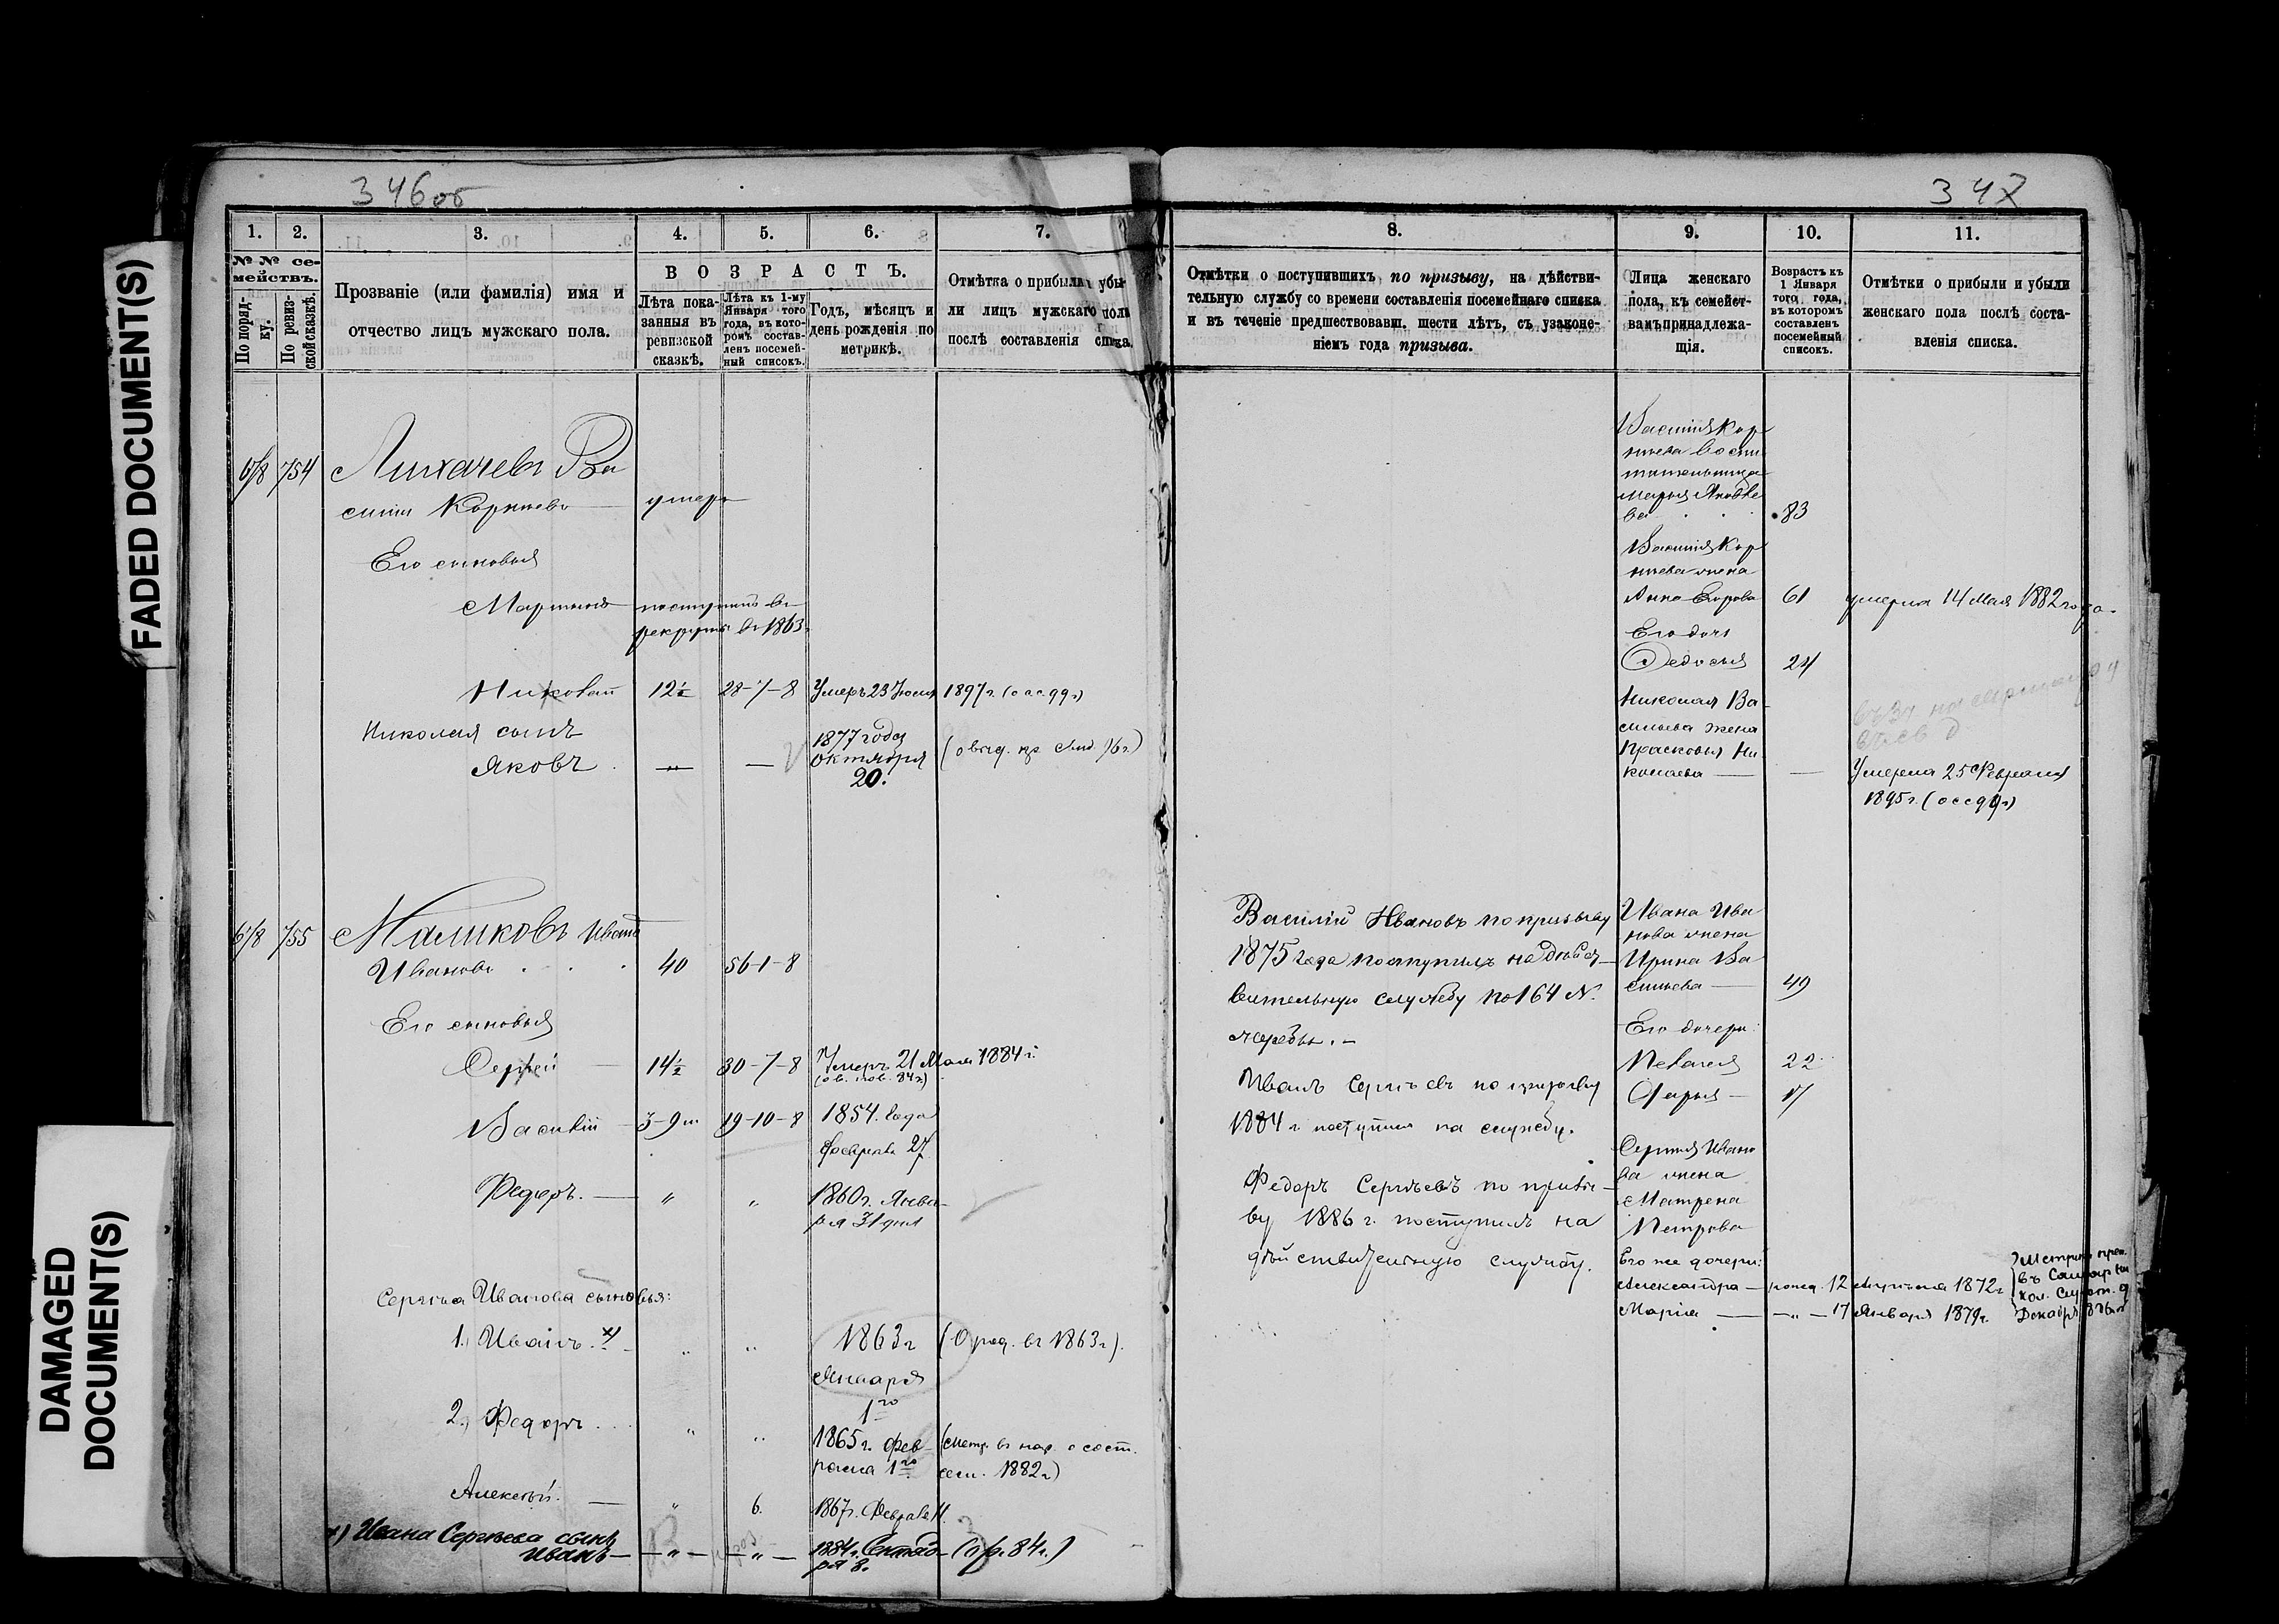 FADED DOCUMENT(S)
DAMAGED
DOCUMENT(S)
346об
347
1.
2.
3.
4.
5.
6.
7.
№№ се-
мействъ.
По поряд-
ку.
По ревиз-
ской сказкѣ.
Прозваніе (или фамилія) имя и
отчество лицъ мужскаго пола.
ВОЗРАСТЪ.
Лѣта пока-
занныя въ
ревизской
сказкѣ.
Лѣта къ 1-му
Января того
года, въ кото-
ромъ состав-
ленъ посемей-
ный списокъ.
Годъ, мѣсяцъ и
день рожденія по
метрикѣ.
Отмѣтка о прибыли и убы-
ли лицъ мужскаго пола
послѣ составленія списка.
754
Лихачевъ Ва
силій Корнѣевъ — умеръ
Его сыновья
Мартынъ — поступилъ въ
рекруты въ 1863
Николай 12½ 28-7-8 Умеръ 23 Іюня 1897 г.
Николая сынъ
Яковъ — — 1877 года
Октября
20.
755
Маликовъ Иванъ
Ивановъ 40 56-1-8
Его сыновья
Сергѣй — 14½ 30-7-8 Умеръ 21 Мая 1884 г.
Василій — 3-9м 19-10-8 1854 года
Февраля 27
Федоръ. — " " 1860 г. Янва-
ря 31 дня
Сергѣя Иванова сыновья:
1. Иванъ. х) " " 1863 г (О род. въ 1863 г.)
Января
1го
2. Федоръ " " 1865 г. Фев-
раля 1го
1882 г)
Алексѣй. — " 6. 1867 г. Февраля
х) Ивана Сергѣева сынъ
Иванъ — " — " — 1884 г. Сентяб-
ря 8.
8.
9.
10.
11.
Отмѣтки о поступившихъ по призыву, на дѣйстви-
тельную службу со времени составленія посемейнаго списка
и въ теченіе предшествовавш. шести лѣтъ, съ узаконе-
ніемъ года призыва.
Лица женскаго
пола, къ семейст-
вамъ принадлежа-
щія.
Возрастъ къ
1 Января
того года,
въ которомъ
составленъ
посемейный
списокъ.
Отмѣтки о прибыли и убыли
женскаго пола послѣ соста-
вленія списка.
Василія Кор
нѣева воспи
тательница
Марья Яковле
ва 83
Василія Кор
нѣева жена
Анна Егорова 61 умерла 14 Мая 1882 года.
Его дочь
Федосья 24
Николая Ва
сильева жена
Прасковья Ни
колаева — — Умерла 25 Февраля
1895 г.
Василій Ивановъ по призыву
1875 года поступилъ на дѣйст-
вительную службу по 164 №
жеребья. —
Иванъ Сергѣевъ по призыву
1884 г. поступилъ на службу.
Федоръ Сергѣевъ по призы-
ву 1886 г. поступилъ на
дѣйствительную службу.
Ивана Ива
нова жена
Ирина Ва
сильева — 49
Его дочери:
Пелагея 22
Дарья — 17
Сергѣя Ивано
ва жена
Матрена
Петрова
Его же дочери:
Александра — рожд. 12 1872 г
Марія — " — 17 Января 1879 г.